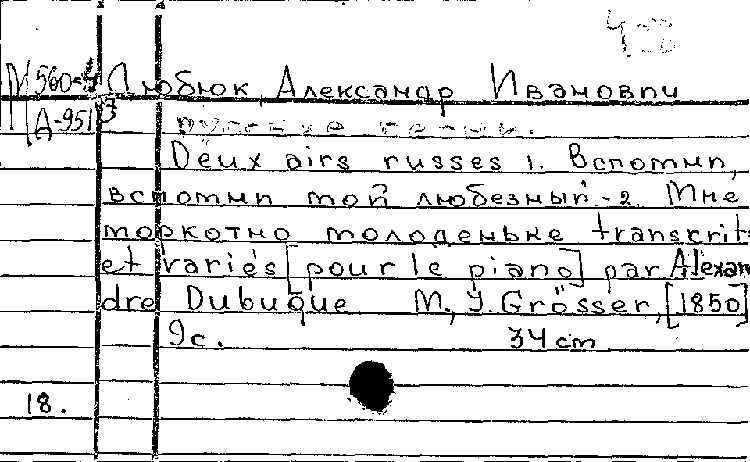 М 560-4 Дюбюк, Александр Иванович
А-951
русские песни.
Deux airs russes 1. Вспомни,
вспомни мой любезный - 2. Мне
моркотно молоденьке transcrits
et variés [pour le piano] par Alexan
dre Dubuque М., J. Grosser, [1850]
9с. 34 cm
18.